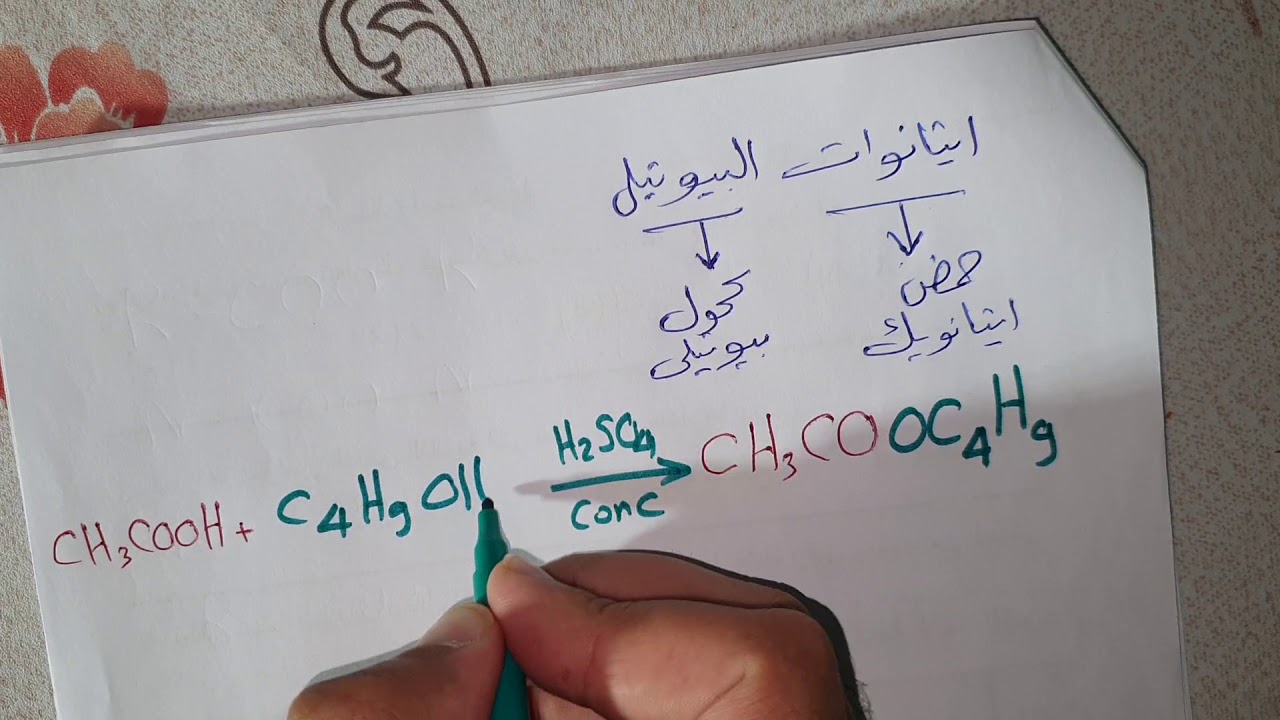 ايثانوات البيوتيل
حمض
ايثانويك
كحول
بيوتيلى
CH₃COOH + C₄H₉OH H₂SO₄ conc CH₃COOC₄H₉